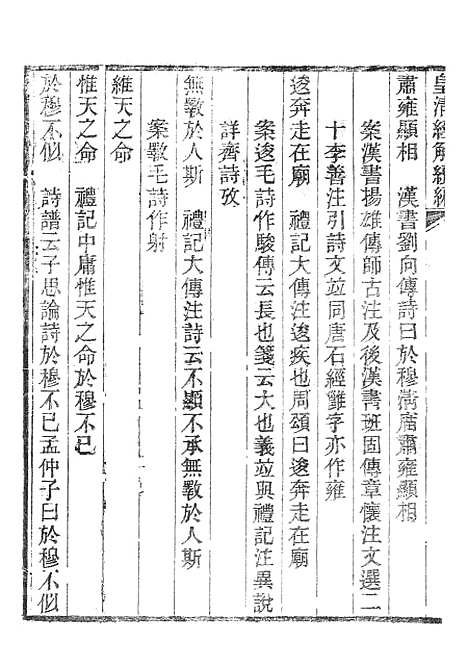 皇清經解續編
肅雍顯相　漢書劉向傳詩曰於穆淸廟肅雍顯相
案漢書揚雄傳師古注及後漢書班固傳章懷注文選二
十李善注引詩文並同唐石經雝字亦作雍
逡奔走在廟　禮記大傳注逡疾也周頌曰逡奔走在廟
案逡毛詩作駿傳云長也箋云大也義並與禮記注異說
詳齊詩攷
無斁於人斯　禮記大傳注詩云不顯不承無斁於人斯
案斁毛詩作射
維天之命
惟天之命　禮記中庸惟天之命於穆不已
於穆不似　詩譜云子思論詩於穆不已孟仲子曰於穆不似